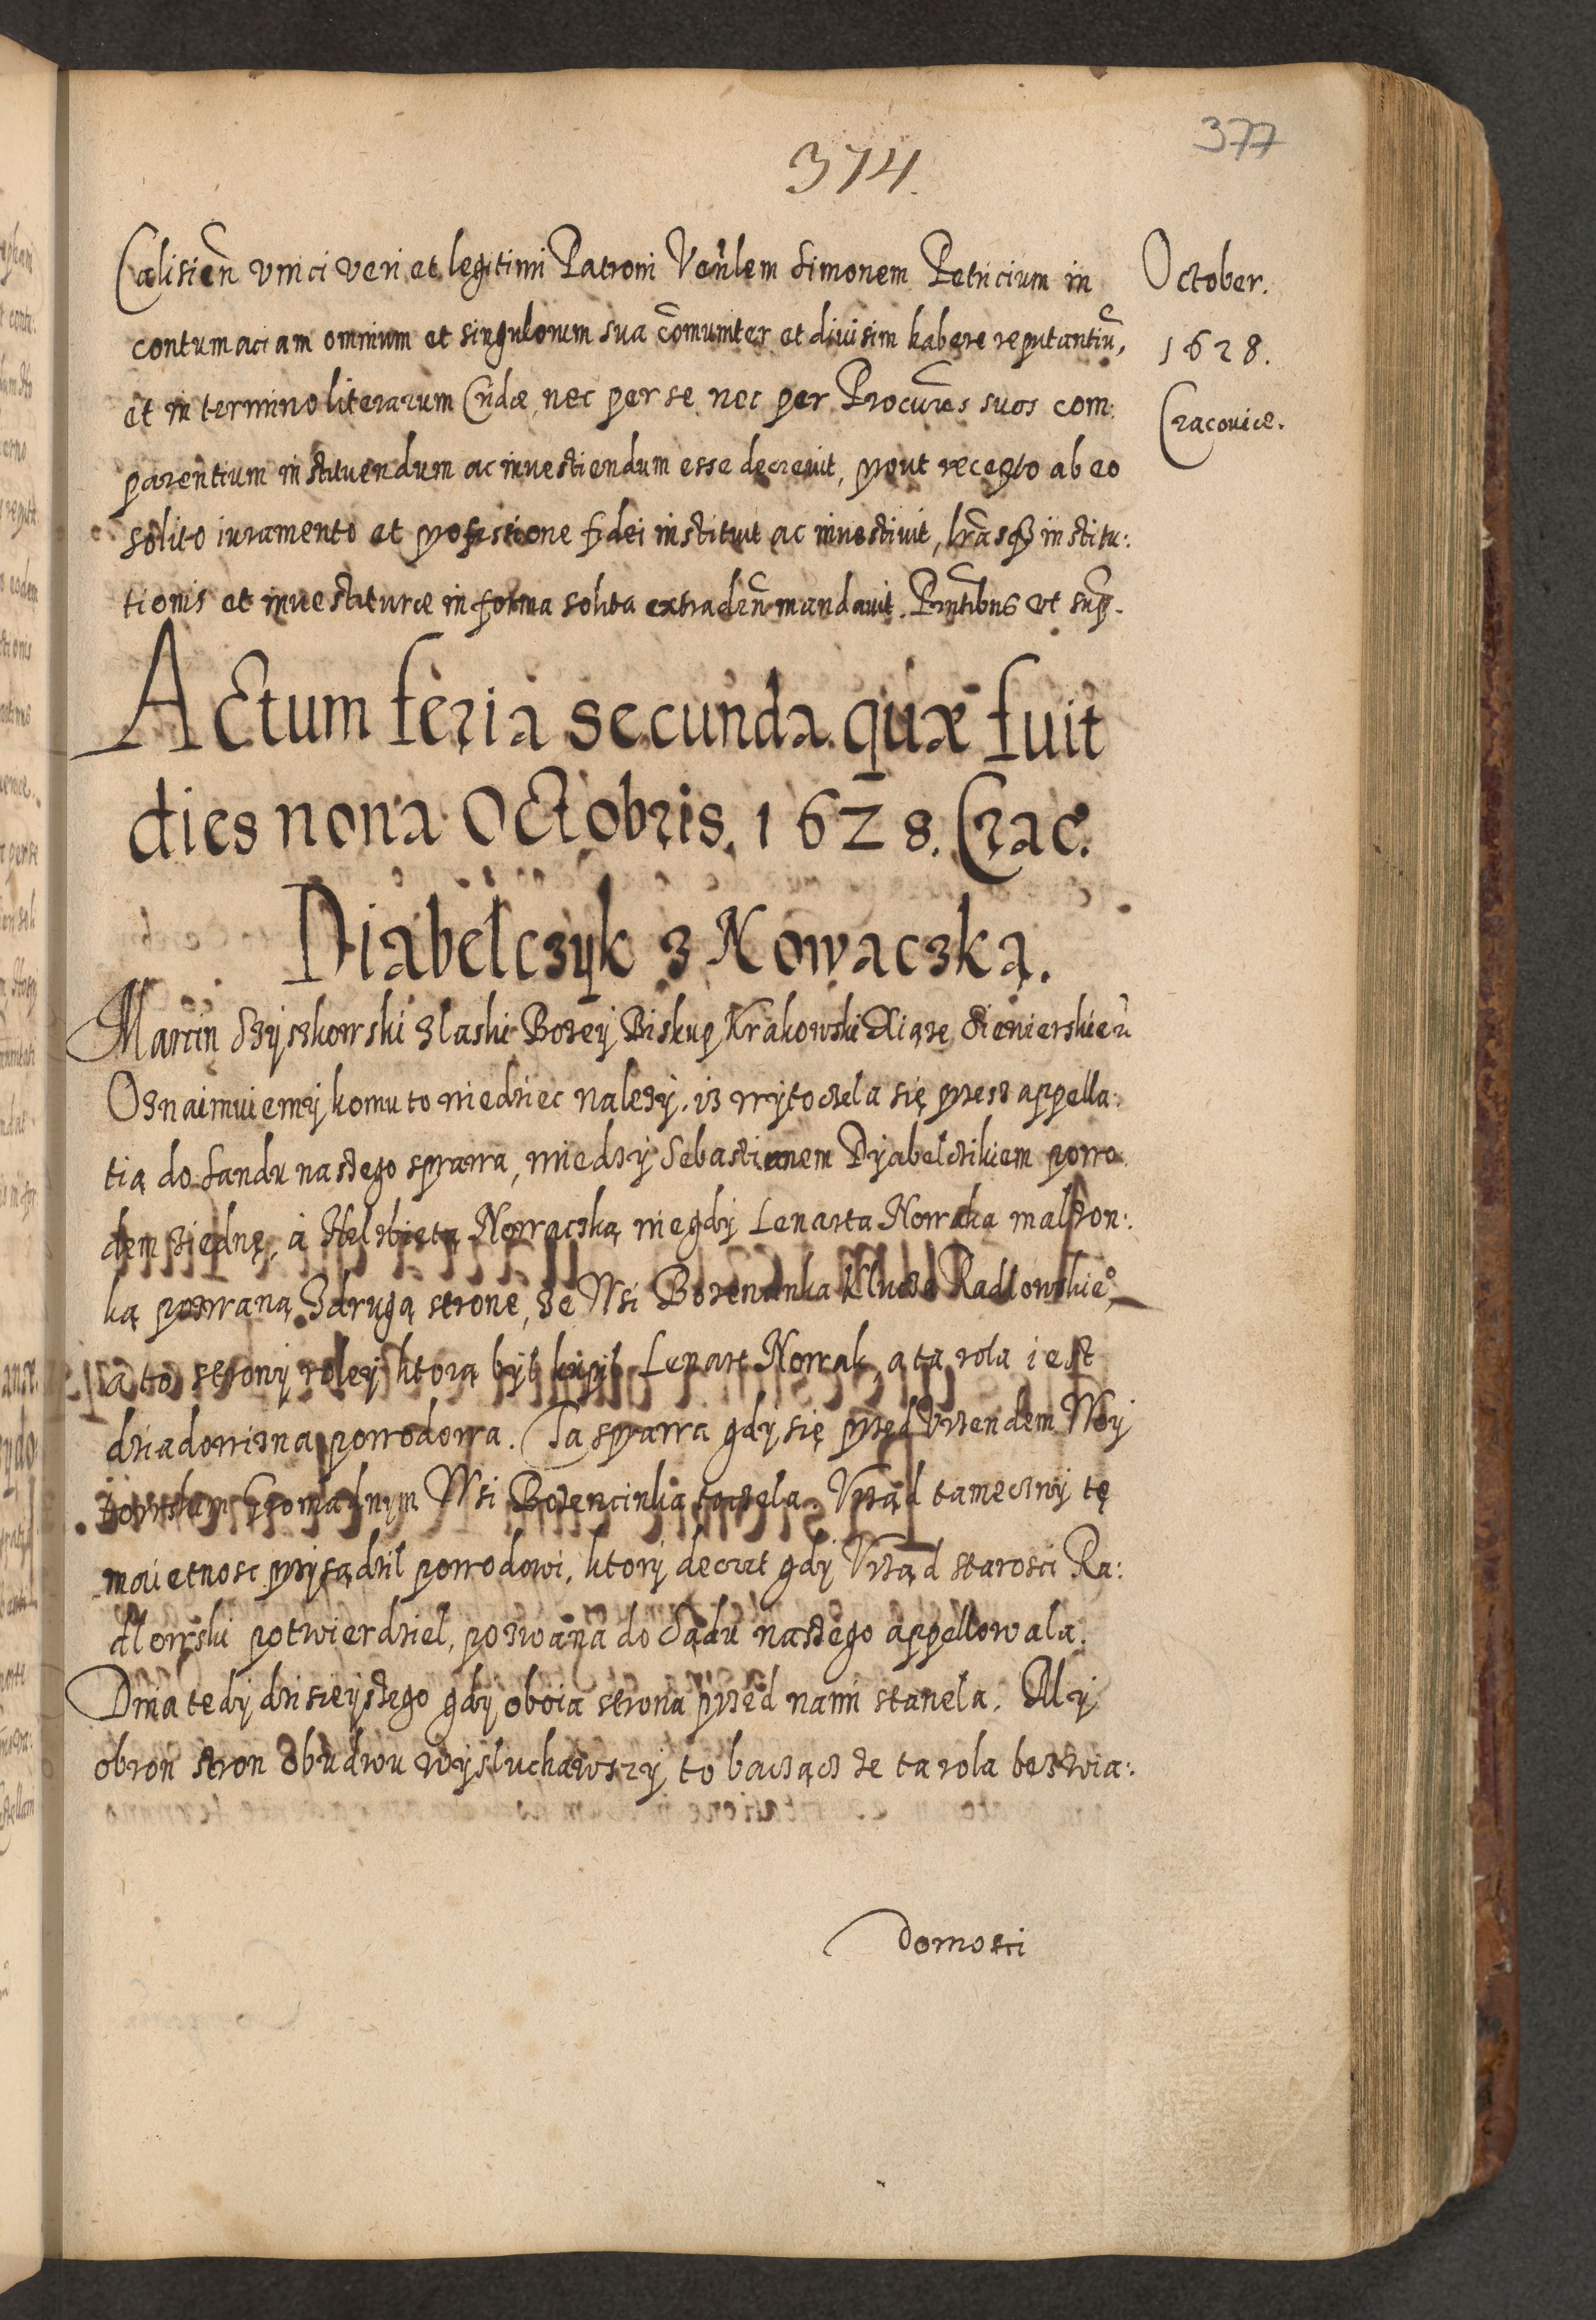 377
374.
October.
1628.
Cracoviæ.
Calisieñ vnici veri et legitimi Patroni Veñlem Simonem Petricium in
contumaciam omnium et singulorum sua com̃uniter et divisim habere reputantiũ,
et in termino literarum Cridæ, nec per se nec per Procũres suos com:
parentium instituendum ac investiendum esse decrevit, prout recepto ab eo
solito iuramento et professione fidei instituit ac investivit, lr̃asq3 institu:
tionis et investituræ in forma solita extraden̄ mandavit. Pñtibus vt supr.
Actum feria secunda quæ fuit
dies nona Octobris. 1628. Crac.
Diabelczyk z Nowaczką.
Marcin Szyszkowski z laski Bozey Biskup Krakowski Xiąze Siewierskie
Oznaimuiemy komu to wiedziec nalezy. iz wytoczela się przez appella:
tią do sandu naszego sprawa, miedzy Sebastianem Dyabelczikiem powo
dem ziednę, à Helzbietą Nowaczką niegdy Lenarta Nowaka malzon:
ką pozwaną zdrugą stronę, ze Wsi Bozencinka Klucza Radlowskie°,
a to strony roley ktorą był kupil Lenart Nowak, a ta rola iest
dziadowizna powodowa. Ta sprawa gdy się przed Vrzendem Woy
towskim Gromadnym Wsi Bozencinka toczela. Vrząd tameczny tę
maietnosc przysądzil powodowi, ktory decret gdy Vrząd starosci Ra:
dlowski potwierdziel, pozwana do Sądu naszego appellowala.
Dnia tedy dzisieyszego gdy oboia strona przed nami stanela. My
obron stron obudwu wysluchawszy to bacząc ze ta rola bez wia:
domosci